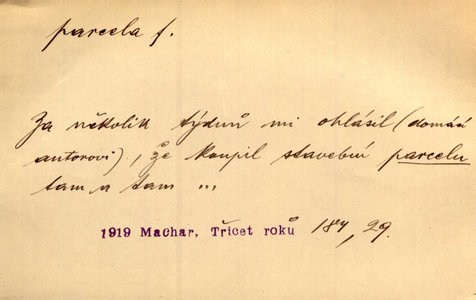 parcela f.
Za několik týdnů mi ohlásil (domácí
autorovi), že koupil stavební parcelu
tam a tam ...
1919 Machar, Třicet roků 184, 29.